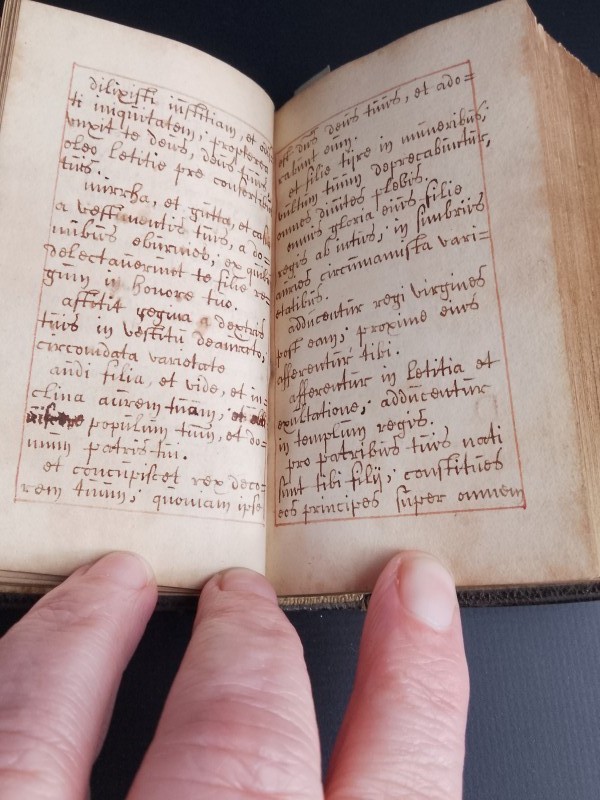 dilixisti iustitiam, et odi
ti iniquitatem; propterea
vnxit te deus, deus tuus,
oleo letitie pre consortibus
tuis.
mirrha, et gutta, et casia
a vestimentis tuis, a do=
mibus eburneis; ex quibus
delectauerunt te filie re=
gum in honore tuo.
astitit regina a dextris
tuis in vestitu deaurato,
circondata varietate
audi filia, et vide, et in=
clina aurem tuam, et
populum tuum, et do=
mum patris tui.
et concupiscet rex deco=
rem tuum; quoniam ipse
est dns deus tuus, et ado=
rabunt eum.
et filie tyre in muneribus;
vultum tuum deprecabuntur,
omnes diuites plebis.
omnis gloria eius, filie
regis ab intus; in fimbriis
aureis circumamista vari=
etatibus.
adducentur regi virgines
post eam; proxime eius
afferentur tibi.
afferentur in letitia et
exultatione; adducentur
in templum regis.
pro patribus tuis nati
sunt tibi filij; constitues
eos principes super omnem